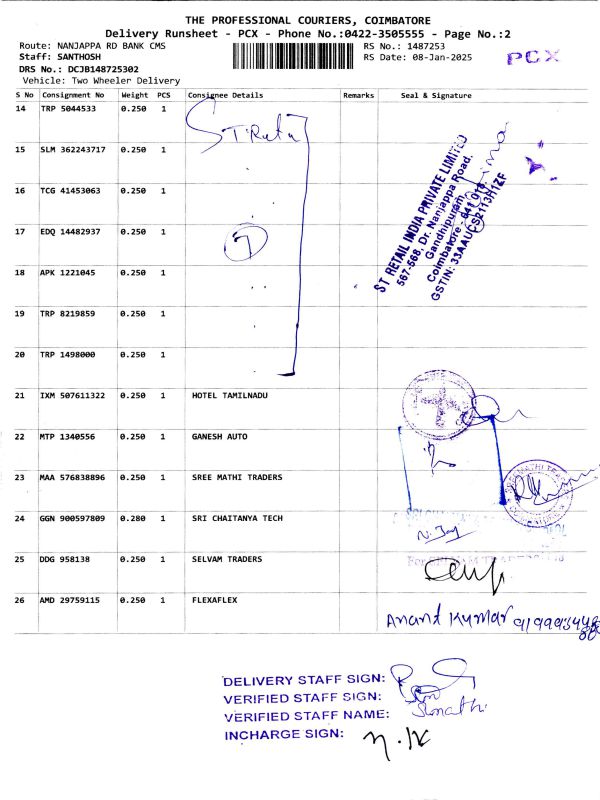 THE PROFESSIONAL COURIERS, COIMBATORE
Delivery Runsheet - PCX - Phone No.:0422-3505555 - Page No.:2
Route: NANJAPPA RD BANK CMS
RS No.: 1487253
Staff: SANTHOSH
RS Date: 08-Jan-2025
PCX
DRS No.: DCJB148725302
Vehicle: Two Wheeler Delivery
S No Consignment No Weight PCS Consignee Details Remarks Seal & Signature
14 TRP 5044533 0.250 1
ST Retail
15 SLM 362243717 0.250 1
16 TCG 41453063 0.250 1
17 EDQ 14482937 0.250 1
7
18 APK 1221045 0.250 1
19 TRP 8219859 0.250 1
20 TRP 1498000 0.250 1
ST RETAIL INDIA PRIVATE LIMITED
567-568, Dr. Nanjappa Road,
Gandhipuram,
Coimbatore - 641 018.
GSTIN: 33AAUCS2113H1ZF
21 IXM 507611322 0.250 1 HOTEL TAMILNADU
22 MTP 1340556 0.250 1 GANESH AUTO
23 MAA 576838896 0.250 1 SREE MATHI TRADERS
24 GGN 900597809 0.280 1 SRI CHAITANYA TECH
25 DDG 958138 0.250 1 SELVAM TRADERS
26 AMD 29759115 0.250 1 FLEXAFLEX
Anand Kumar
DELIVERY STAFF SIGN:
VERIFIED STAFF SIGN:
VERIFIED STAFF NAME:
INCHARGE SIGN: